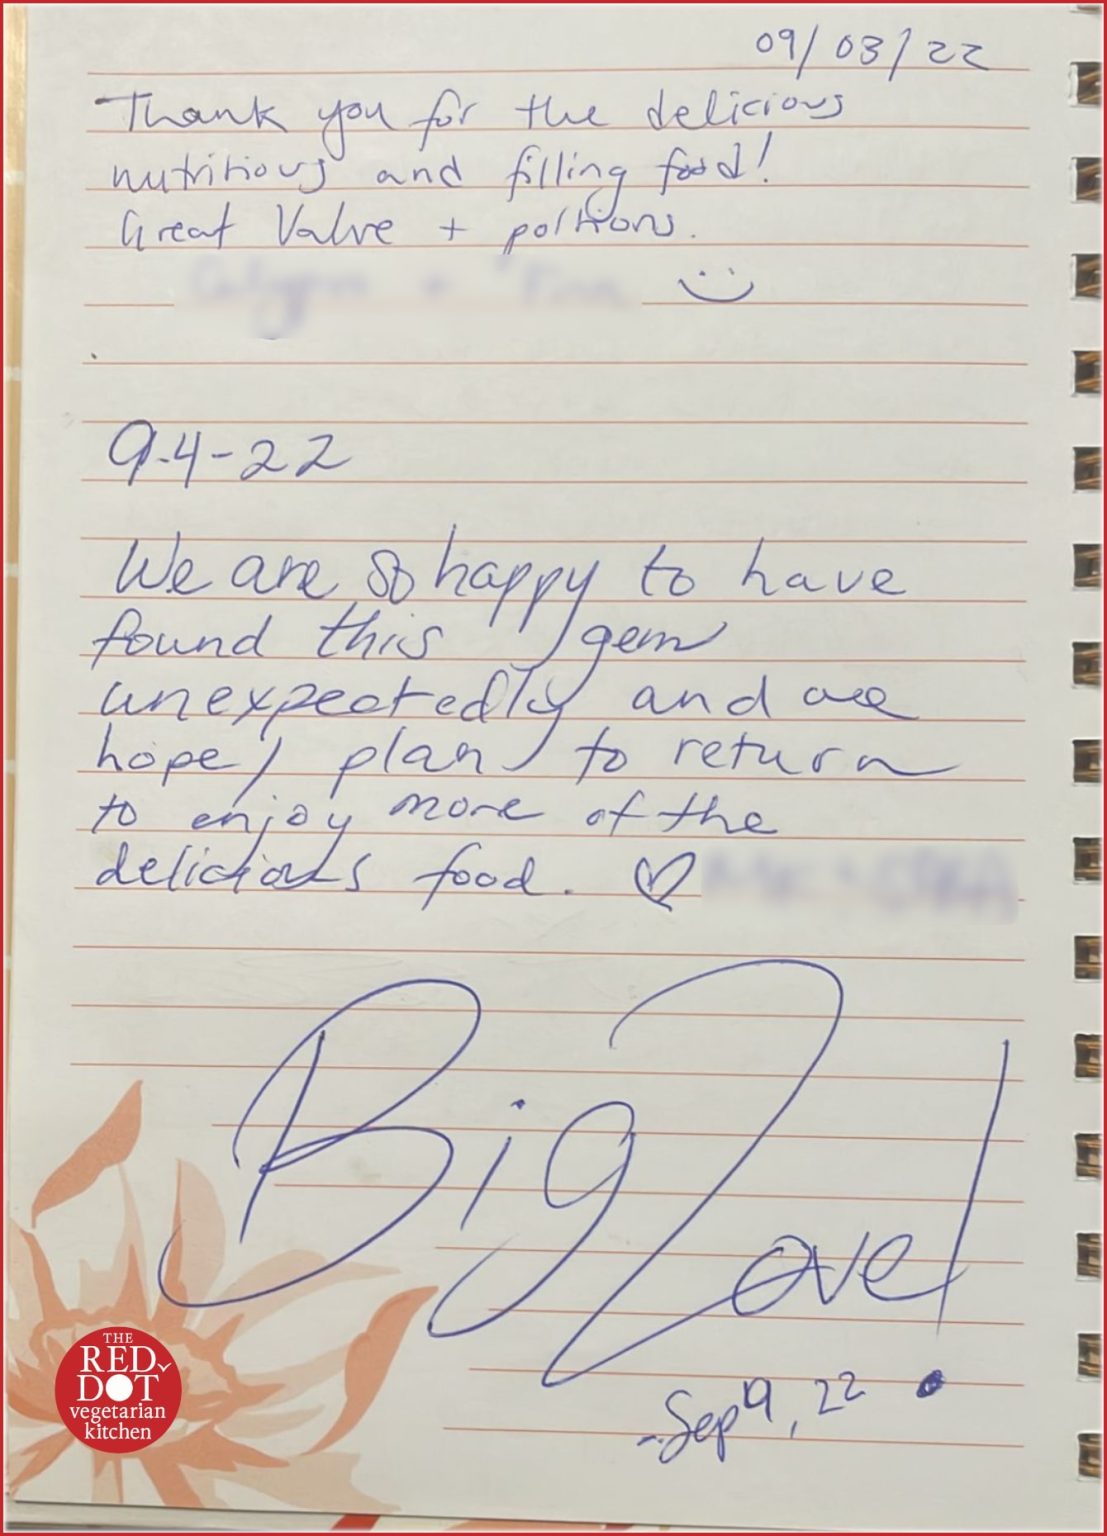 09/03/22
Thank you for the delicious
nutritious and filling food!
Great Value + portions.
9-4-22
We are so happy to have
found this gem
unexpectedly and we
hope / plan to return
to enjoy more of the
delicious food. ♡
Big Love!
Sep 19, 22
THE
RED
DOT
vegetarian
kitchen